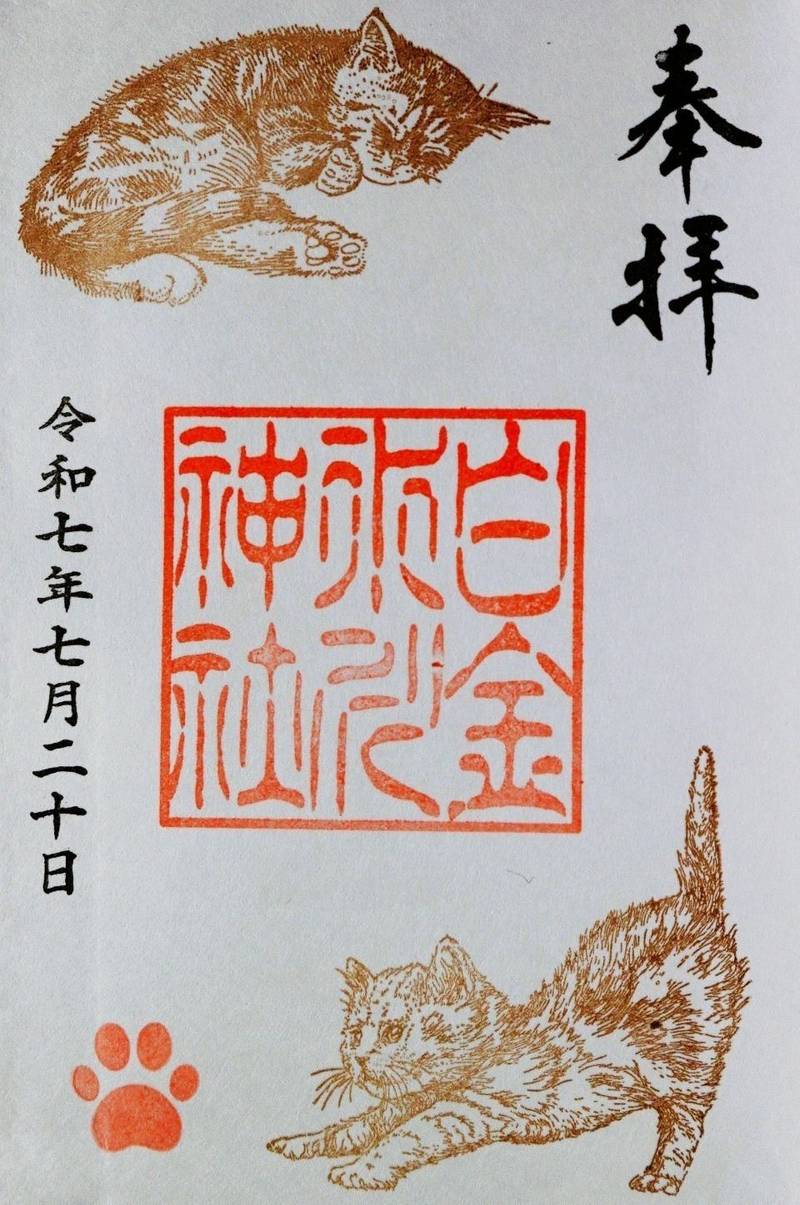 奉拝
白金
氷川
神社
令和七年七月二十日